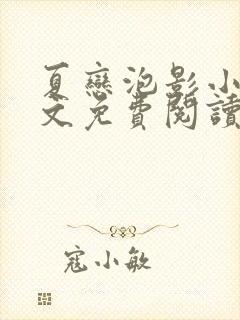 夏戀泡影小
文免費閱讀
寇小敏